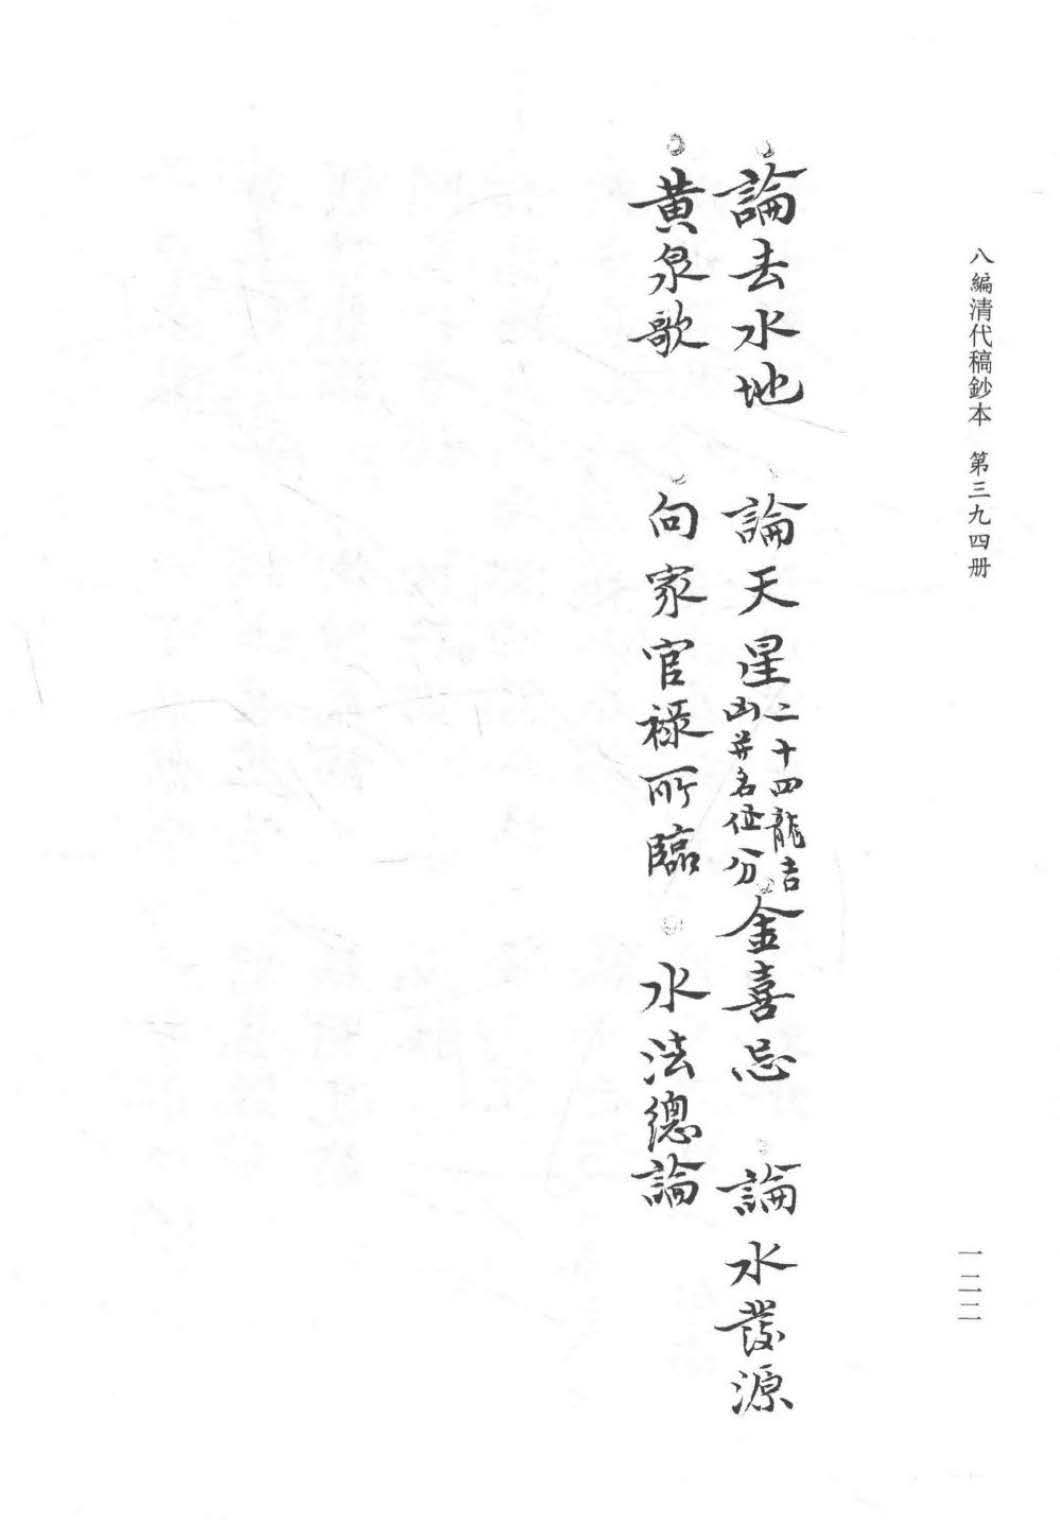 八編清代稿鈔本　第三九四册
一二二
論去水地　論天星二十四龍吉凶並名位分　金喜忌　論水發源
黄泉歌　向家官祿所臨　水法總論